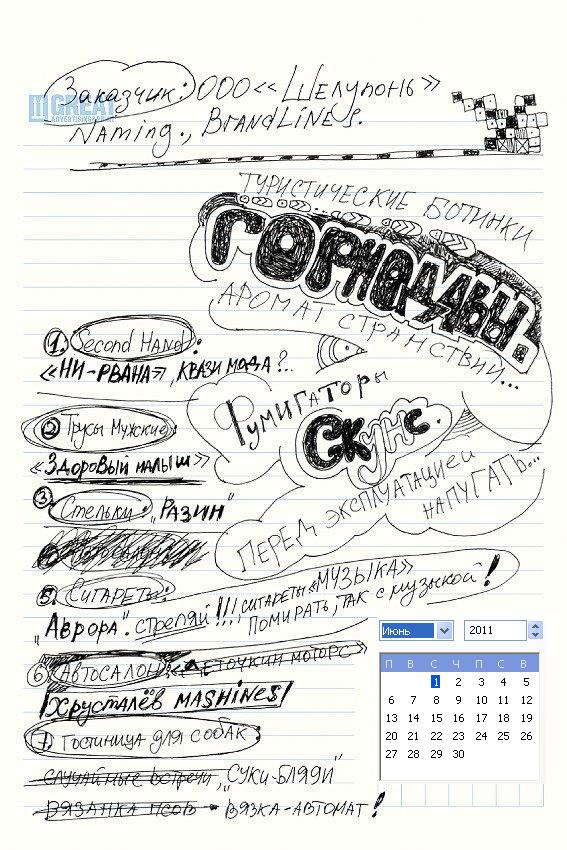 GREAT
ADVERTISING
Заказчик: ООО «Шелупонь»
Naming., BrandLines.
ТУРИСТИЧЕСКИЕ БОТИНКИ
ГОРНАДАВЫ.
АРОМАТ СТРАНСТВИЙ...
1. Second Hand:
«НИ-РВАНА», КВАЗИ МОДА?..
Фумигаторы
Скунс.
ПЕРЕД ЭКСПЛУАТАЦИЕЙ
НАПУГАТЬ...
2 Трусы Мужские:
«Здоровый малыш»
3 Стельки: „РАЗИН"
5. Сигареты:
„Аврора". стреляй!!!
СИГАРЕТЫ «МУЗЫКА»
ПОМИРАТЬ, ТАК с музыкой!
6 АВТОСАЛОН:
Хрусталёв MASHINES
7 Гостиница для собак
случайные встречи, „СУКИ-БЛЯДИ"
ВЯЗАНКА ПСОВ - ВЯЗКА-АВТОМАТ!
Июнь 2011
П В С Ч П С В
1 2 3 4 5
6 7 8 9 10 11 12
13 14 15 16 17 18 19
20 21 22 23 24 25 26
27 28 29 30